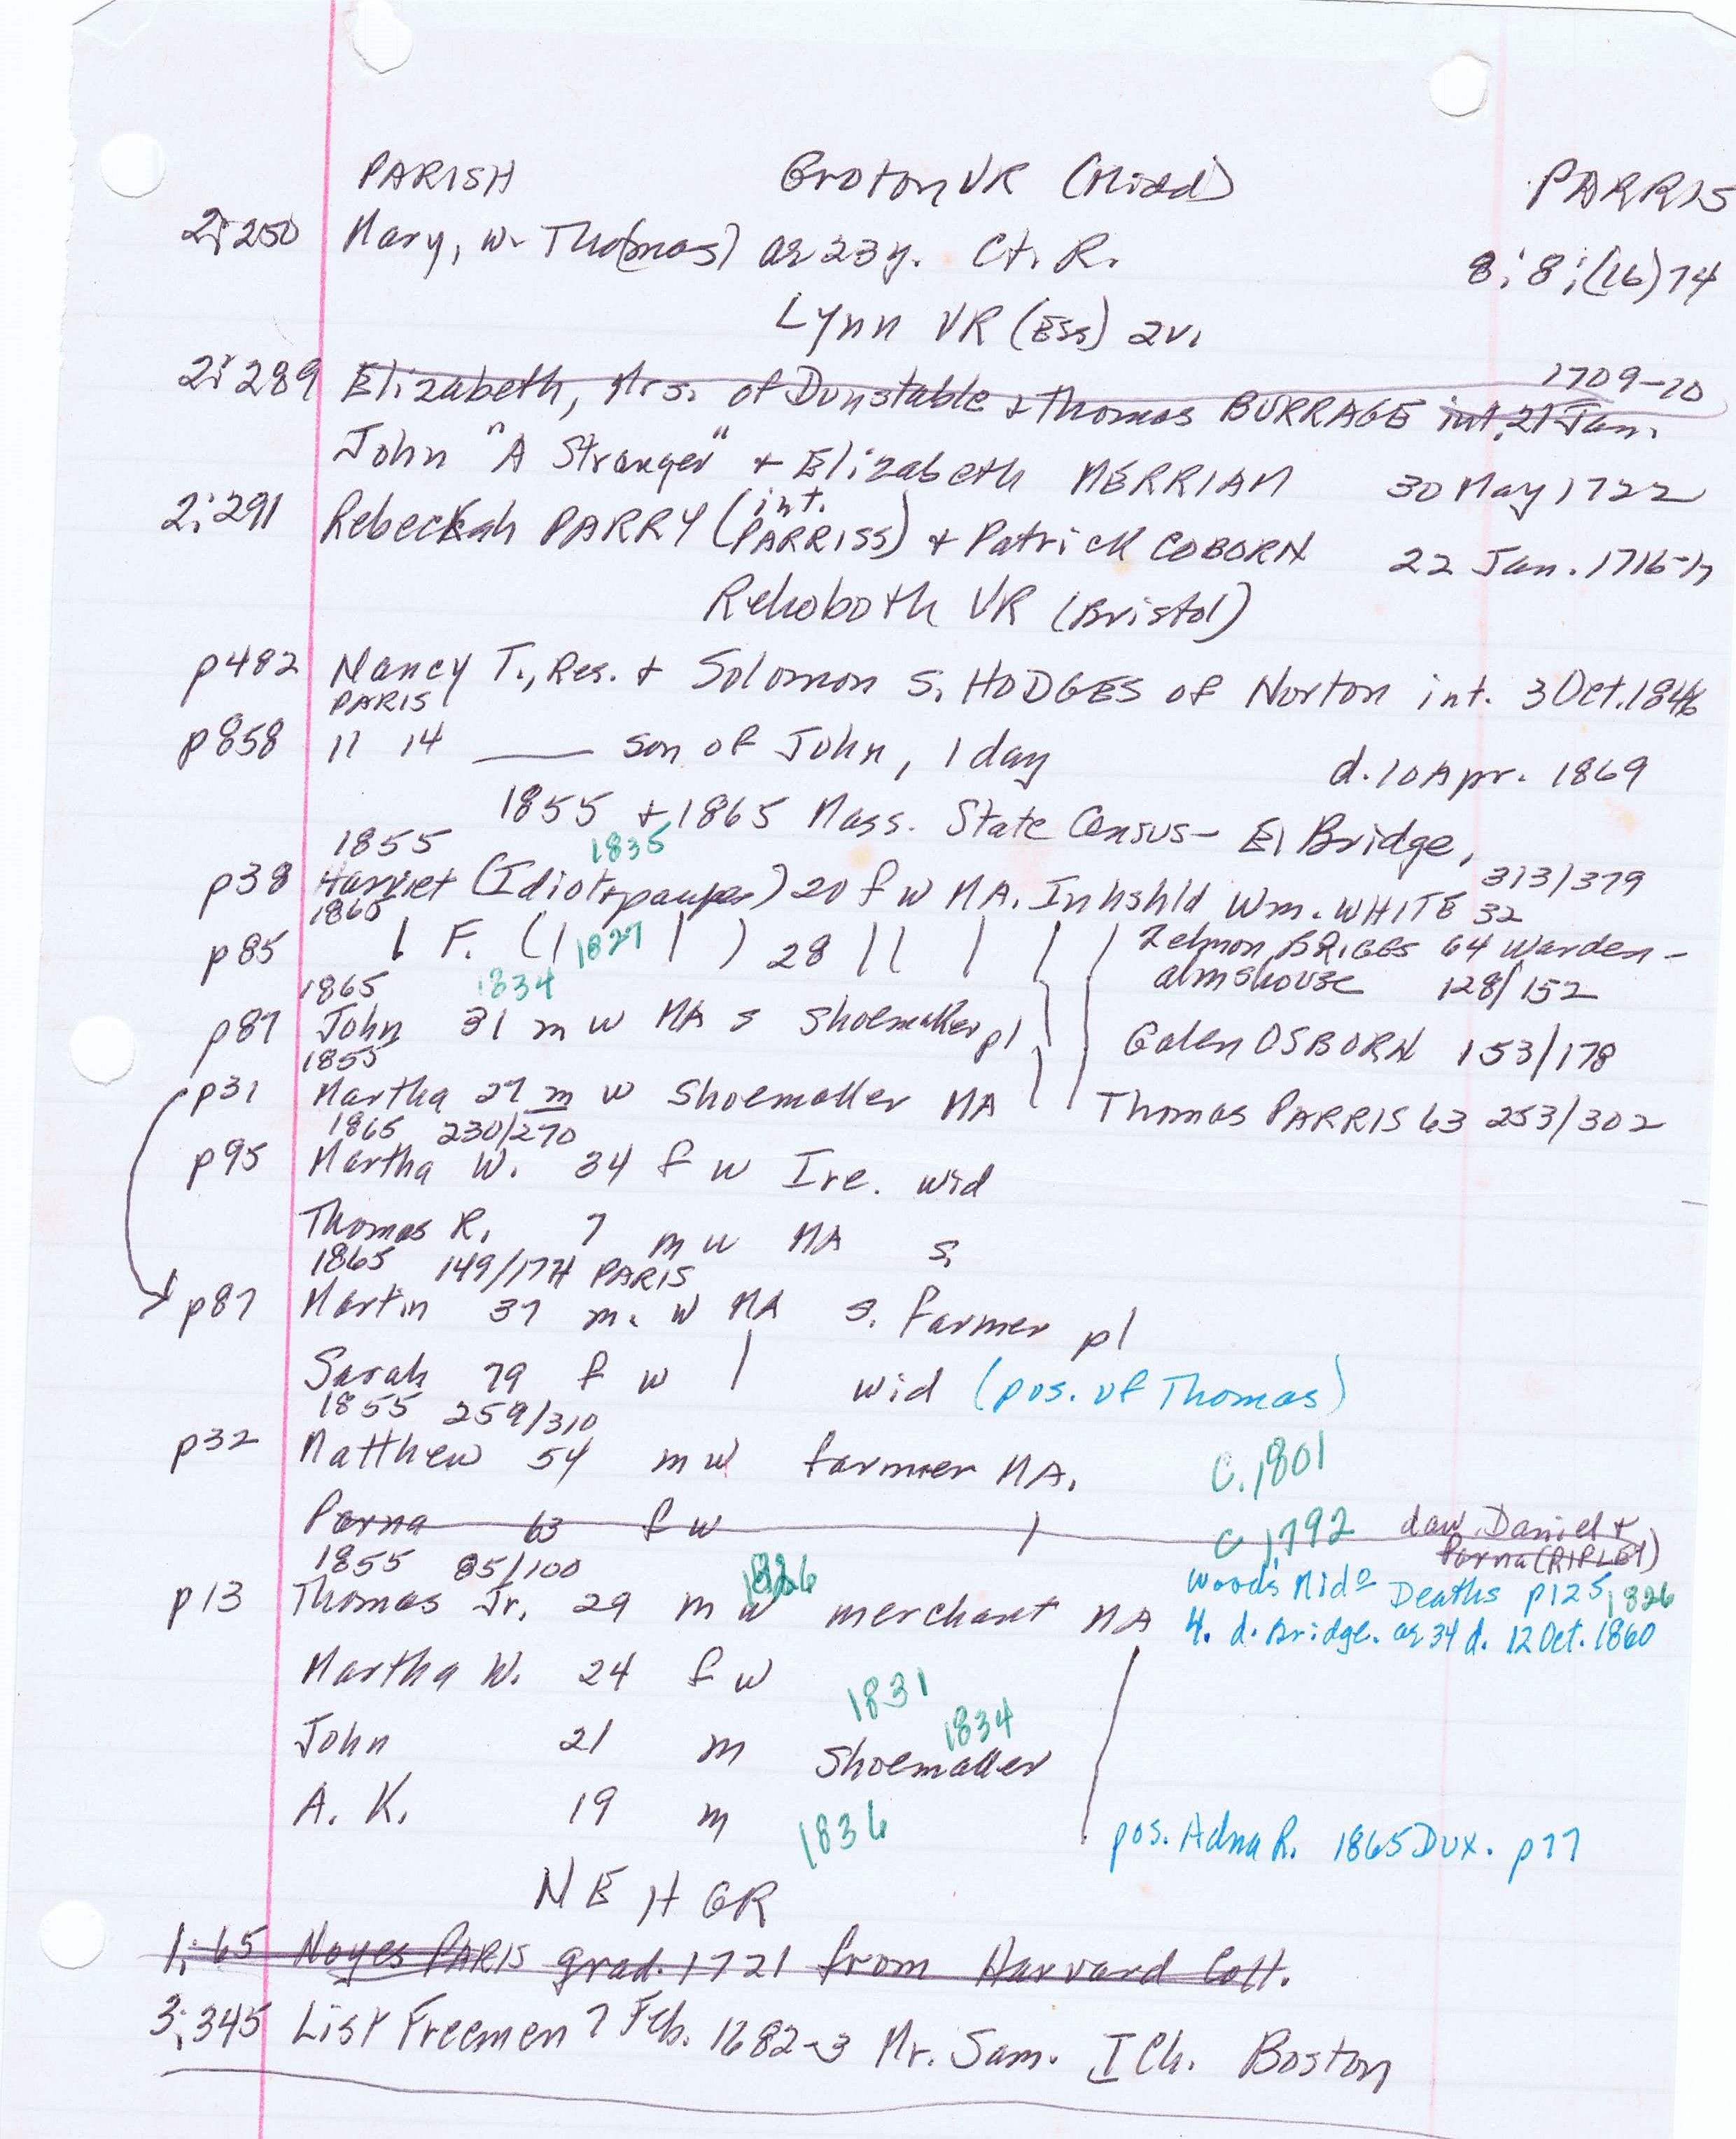 PARISH Groton VR (Midd) PARRIS
2:250 Mary, w. Tho(mas) ag 23y. Ct. R. 8:8:(16)74
Lynn VR (Ess) 2v.
1709-10
2:289 Elizabeth, Mrs. of Dunstable + Thomas BURRAGE int. 21 Jan.
John "A Stranger" + Elizabeth MERRIAM 30 May 1722
int.
2:291 Rebeckah PARRY (PARRISS) + Patrick COBORN 22 Jan. 1716-17
Rehoboth VR (Bristol)
p482 Nancy T., Res. + Solomon S. HODGES of Norton int. 3 Oct. 1846
PARIS
p858 11 14 —— son of John, 1 day d. 10 Apr. 1869
1855 + 1865 Mass. State Census - E. Bridge,
1855 1835 313/379
p38 Harriet (Idiot + pauper) 20 f w MA. In hshld Wm. WHITE 32
1865 1827
p85 | F. ( | | ) 28 | | | | | Zelmon BRIGGS 64 Warden -
almshouse 128/152
1865 1834
p87 John 31 m w MA s shoemaker pl Galen OSBORN 153/178
1855
p31 Martha 27 m w Shoemaker MA Thomas PARRIS 63 253/302
1865 230/270
p95 Martha W. 34 f w Ire. wid
Thomas R. 7 m w MA s.
1865 149/174 PARIS
p87 Martin 37 m. w MA s. farmer pl
Sarah 79 f w | wid (pos. of Thomas)
1855 259/310
p32 Matthew 54 m w farmer MA. c. 1801
Parna 63 f w | c 1792 dau. Daniel +
Parna (RIPLEY)
1855 85/100 1826 Woods Mid° Deaths p125, 1826
p13 Thomas Jr. 29 m w merchant MA 4. d. Bridge. ag 34 d. 12 Oct. 1860
Martha W. 24 f w 1831
John 21 m Shoemaker 1834
A. K. 19 m 1836 pos. Adna R. 1865 Dux. p77
NEHGR
1:65 Noyes PARIS grad. 1721 from Harvard Coll.
3:345 List Freemen 7 Feb. 1682-3 Mr. Sam. I Ch. Boston